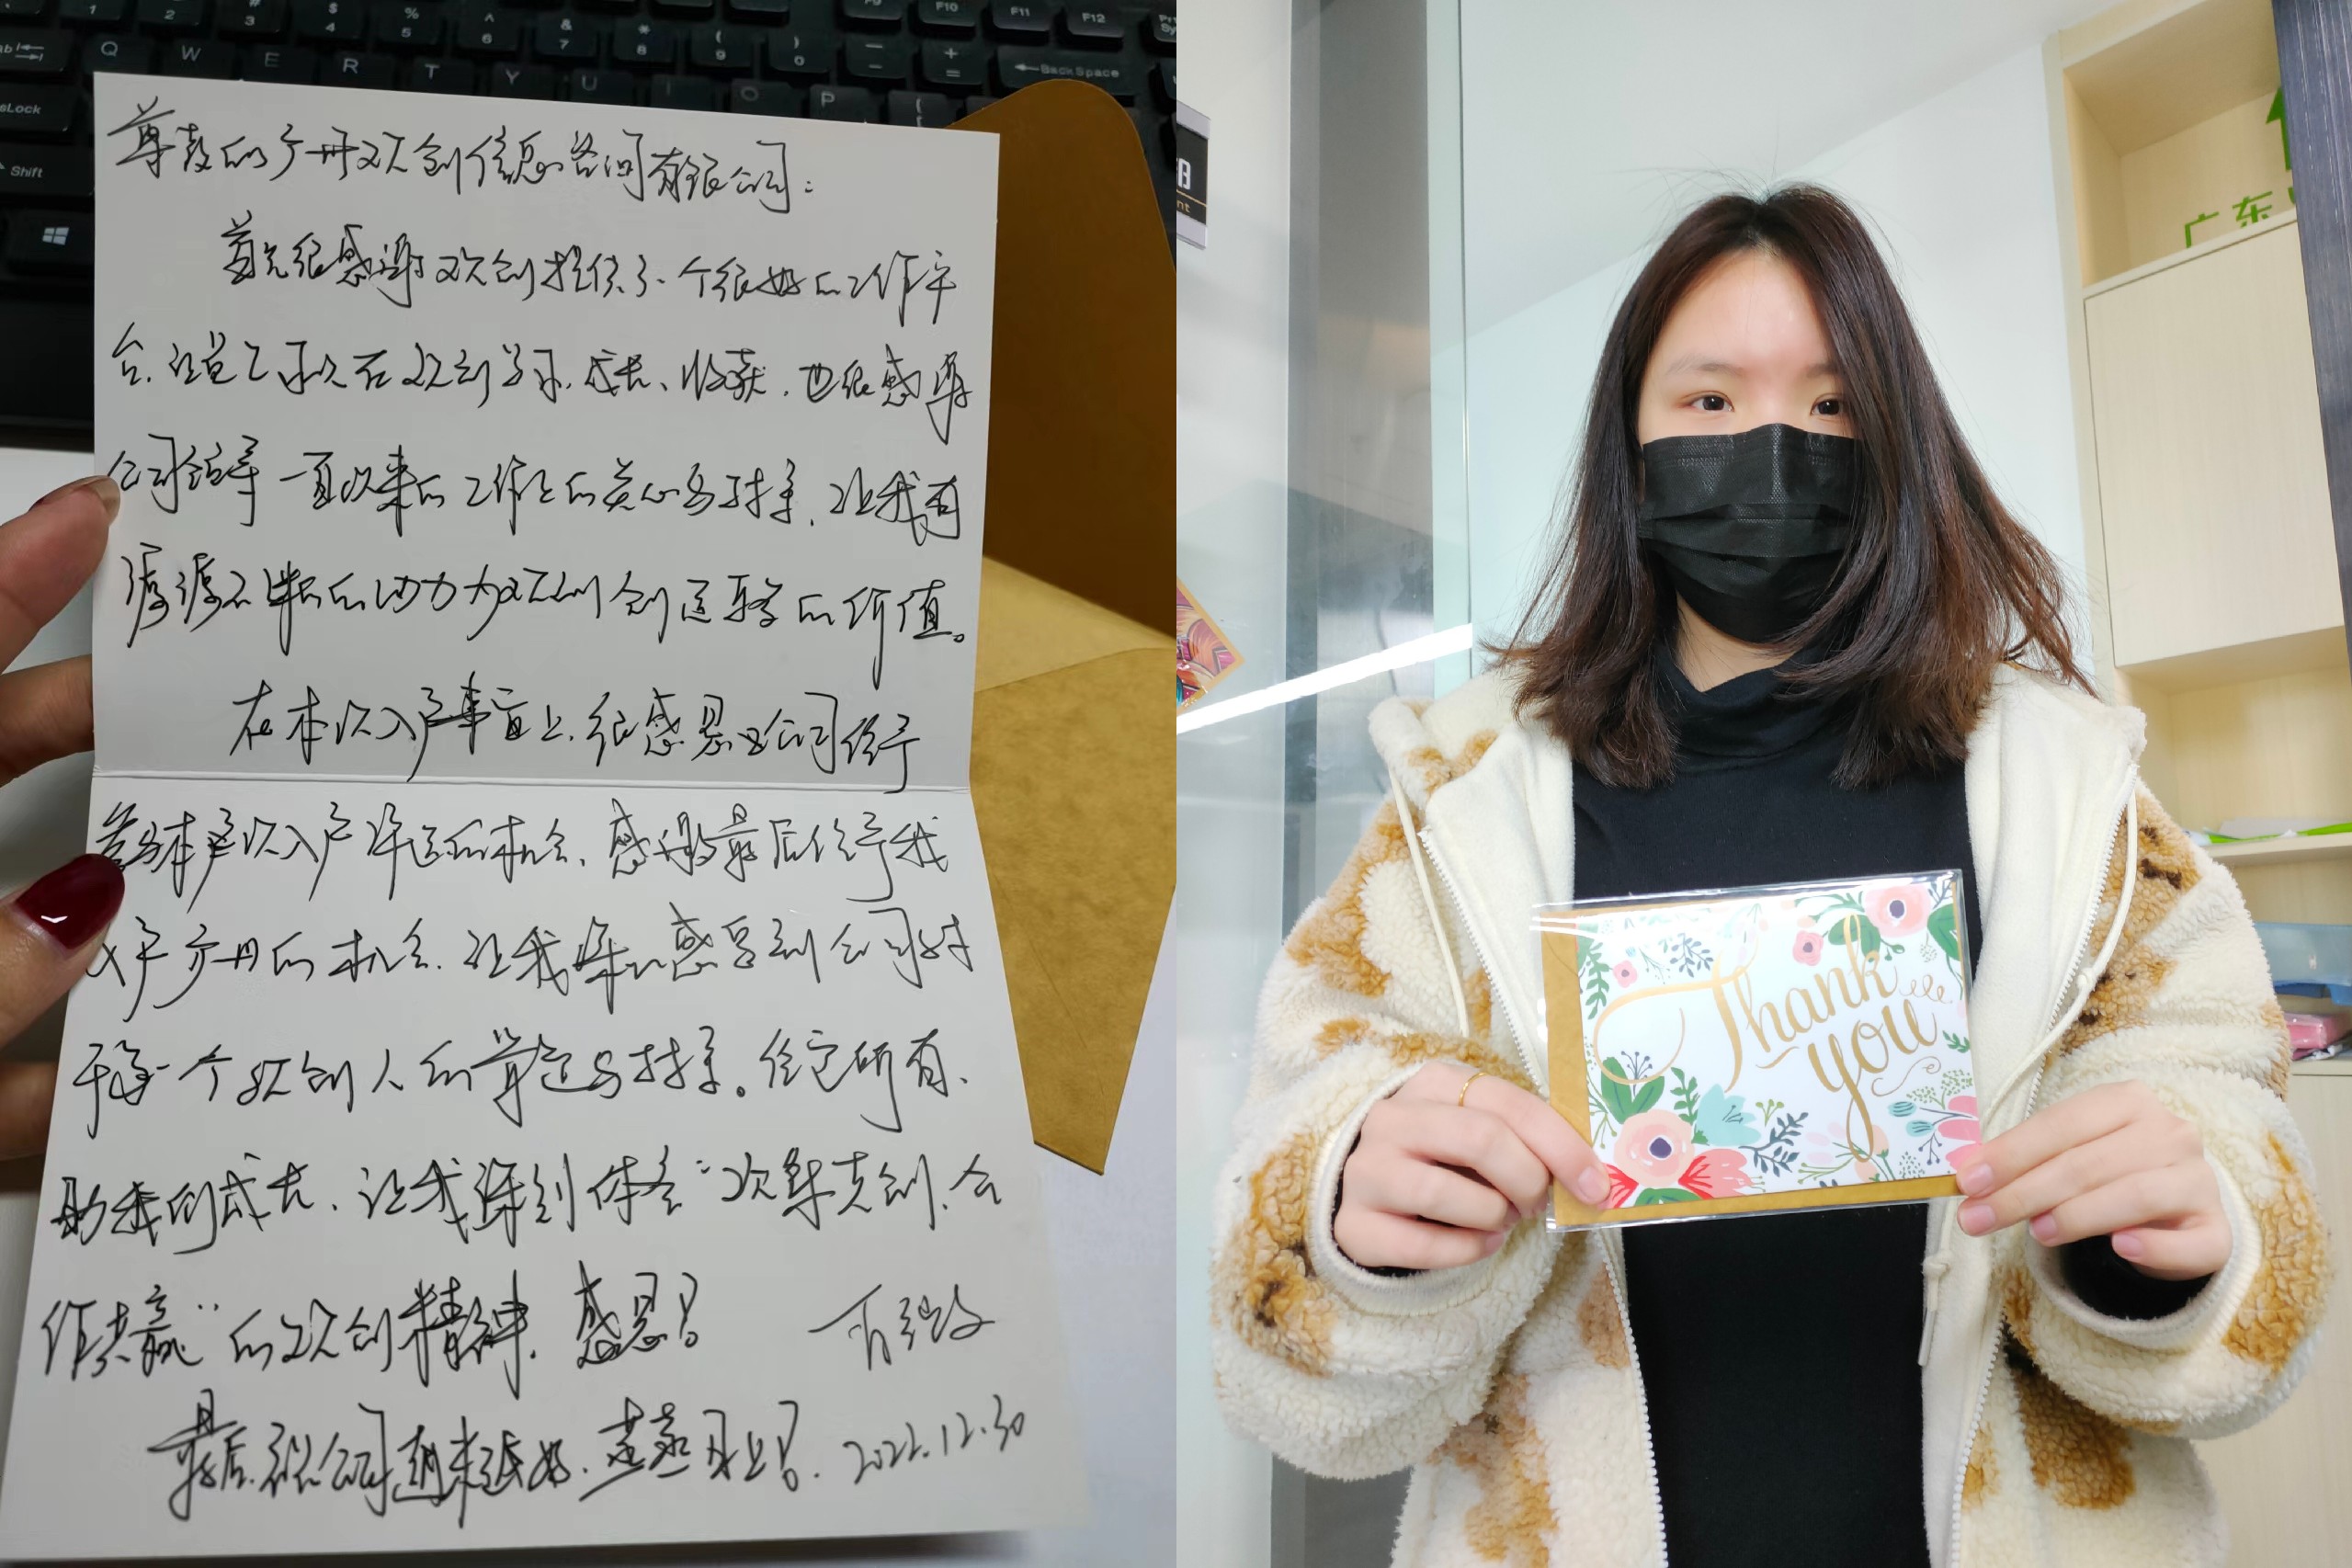 尊敬的广州欢创信息咨询有限公司：
首先很感谢欢创提供了一个很好的工作平
台，让自己可以在欢创学习、成长、收获，也很感恩
公司领导一直以来的工作上的关心与对待，让我有
源源不断的动力为欢创创造更多的价值。
在本次入户事宜上，很感恩公司给予
参与本次入户评选的机会，感谢最后给予我
入户广州的机会，让我深深感受到公司对
于每一个欢创人的肯定与
所有
助我们成长，让我深刻体会“欢乐共创，合
作共赢”的欢创精神，感恩！
最后，祝公司越来越好，蒸蒸日上！
2022.12.30
Q W E R T Y U I O P
F10 F11 F12
BackSpace
Shift
Thank
you
广东